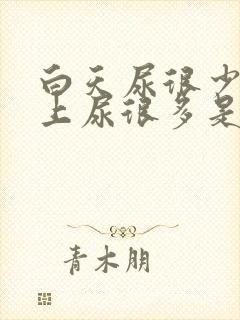 白天尿很少
上尿很多是
青木朋